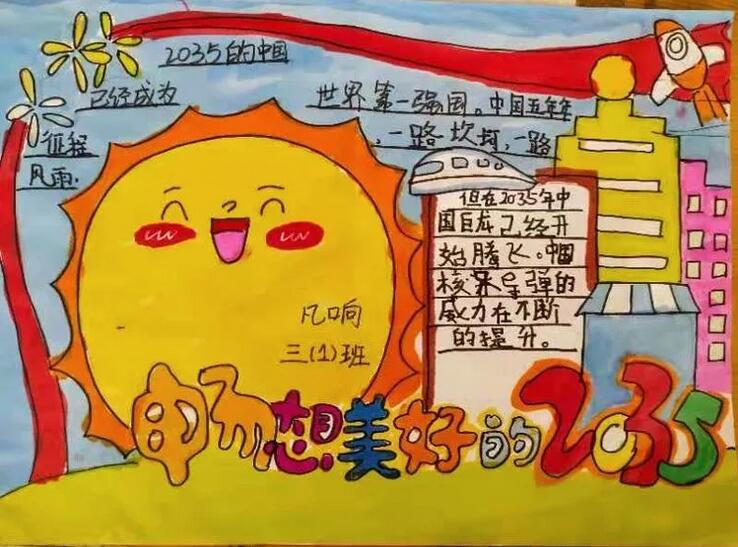 2035的中国
已经成为
世界第一强国。中国五年年
征程
，一路坎坷，一路
风雨.
但在2035年中
国巨龙已经开
始腾飞。中国
核采导弹的
威力在不断
的提升。
凡响
三(1)班
畅想美好的2035